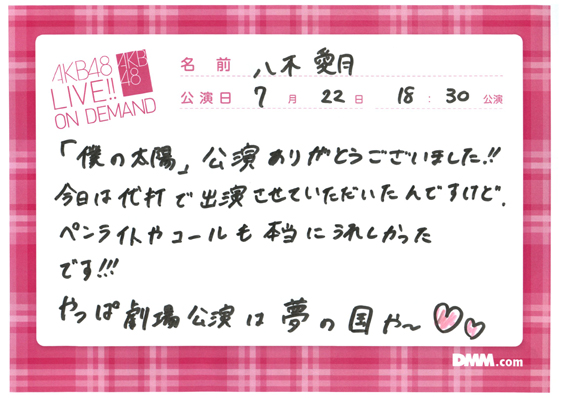 AKB48
LIVE!!
ON DEMAND
AKB
48
名前 八木愛月
公演日 7月22日 18:30公演
「僕の太陽」公演ありがとうございました!!
今日は代打で出演させていただいたんですけど、
ペンライトやコールも本当にうれしかった
です!!!
やっぱ劇場公演は夢の国や～♡♡
DMM.com